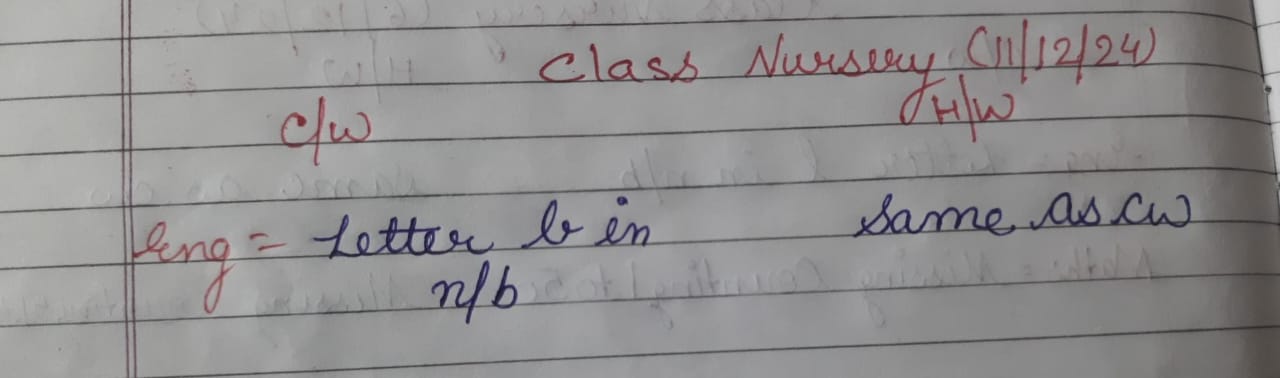 Class Nursery (11/12/24)
C/W H/W
Eng = Letter b in same as cw
n/b